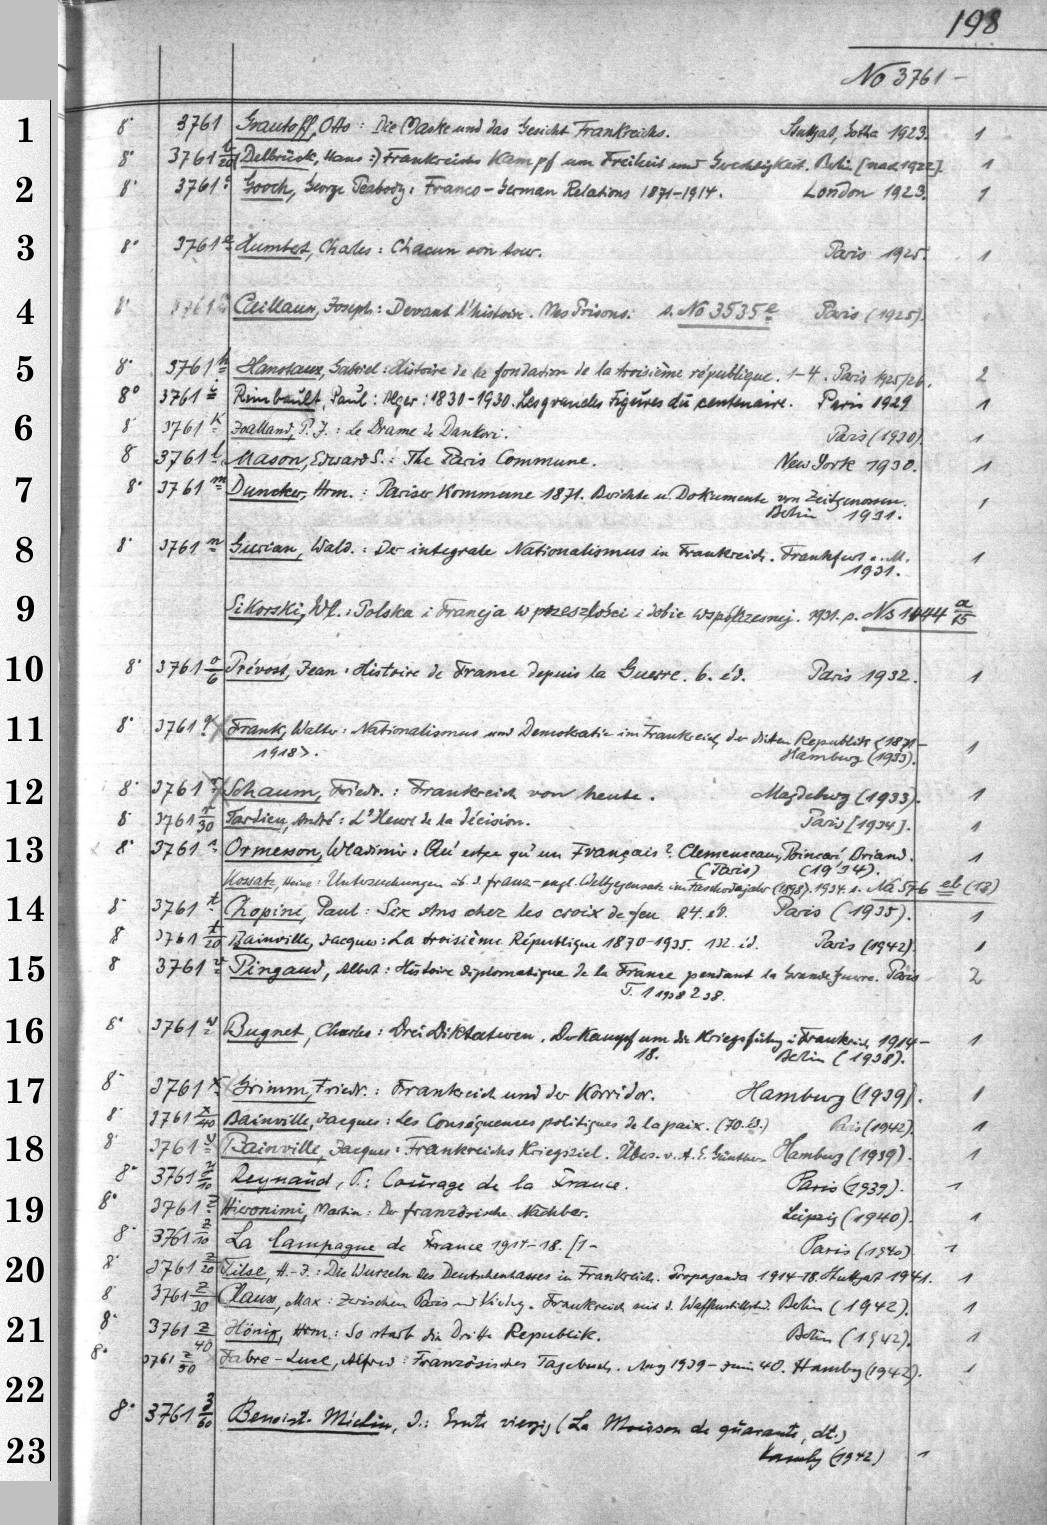 198
No 3761 –
1 8° 3761 Grautoff, Otto: Die Maske und das Gesicht Frankreichs. Stuttgart, Gotha 1923. 1
8° 3761 b/20 [Delbrück, Hans:] Frankreichs Kampf um Freiheit und Gerechtigkeit. Berlin [nach 1922]. 1
2 8° 3761 c Gooch, George Peabody: Franco-German Relations 1871–1914. London 1923. 1
3 8° 3761 e Humbert, Charles: Chacun son tour. Paris 1925. 1
4 8° 3761 Caillaux, Joseph: Devant l'histoire. Mes Prisons. s. No 3535 e Paris (1925).
5 8° 3761 h Hanotaux, Gabriel: Histoire de la fondation de la troisième république. 1–4. Paris 1925/26. 2
8° 3761 i Rimbault, Paul: Alger: 1830-1930. Les grandes Figures du centenaire. Paris 1929 1
6 8° 3761 k Joalland, P. J.: Le Drame de Dankori. Paris (1930). 1
8° 3761 l Mason, Edward S.: The Paris Commune. New York 1930. 1
7 8° 3761 m Duncker, Hrm.: Pariser Kommune 1871. Berichte u. Dokumente von Zeitgenossen. 1
Berlin 1931.
8 8° 3761 n Gurian, Wald.: Der integrale Nationalismus in Frankreich. Frankfurt a. M. 1
1931.
9 Sikorski, Wł.: Polska i Francja w przeszłości i dobie współczesnej. 1931. s. No 1444 a/15
10 8° 3761 o/6 Prévost, Jean: Histoire de France depuis la Guerre. 6. éd. Paris 1932. 1
11 8° 3761 q Frank, Walter: Nationalismus und Demokratie im Frankreich der dritten Republik <1871– 1
1918>. Hamburg (1933).
12 8° 3761 r Schaum, Friedr.: Frankreich von heute. Magdeburg (1933). 1
8° 3761 r/30 Tardieu, André: L'Heure de la décision. Paris [1934]. 1
13 8° 3761 s Ormesson, Wladimir: Qu'est-ce qu'un Français? Clemenceau, Poincaré, Briand. 1
(Paris) (1934).
Kossatz, Heinz: Untersuchungen üb. d. franz.-engl. Weltgegensatz im Faschodajahr (1898). 1934. s. No 576 eb (13)
14 8° 3761 t Chopine, Paul: Six Ans chez les croix de feu. 24. éd. Paris (1935). 1
8° 3761 t/20 Bainville, Jacques: La troisième République 1870-1935. 132. éd. Paris (1942). 1
15 8° 3761 v Pingaud, Albert: Histoire diplomatique de la France pendant la Grande Guerre. Paris 2
T. 1 1938 2 38.
16 8° 3761 w Bugnet, Charles: Drei Diktaturen. Der Kampf um die Kriegsführung i. Frankreich 1914– 1
18. Berlin (1938).
17 8° 3761 x Grimm, Friedr.: Frankreich und der Korridor. Hamburg (1939). 1
8° 3761 x/40 Bainville, Jacques: Les Conséquences politiques de la paix. (70. éd.) Paris (1942). 1
18 8° 3761 y Bainville, Jacques: Frankreichs Kriegsziel. Übers. v. A. E. Günther. Hamburg (1939). 1
8° 3761 y/10 Reynaud, P.: Courage de la France. Paris (1939). 1
19 8° 3761 z Hieronimi, Martin: Der französische Nachbar. Leipzig (1940). 1
8° 3761 z/10 La Campagne de France 1914–18. [1– Paris (1940) 1
20 8° 3761 z/20 Tilse, H.-J.: Die Wurzeln des Deutschenhasses in Frankreich. Propaganda 1914-18. Stuttgart 1941. 1
8° 3761 z/30 Clauss, Max: Zwischen Paris und Vichy. Frankreich seit d. Waffenstillstd. Berlin (1942). 1
21 8° 3761 z/40 Hönig, Hrm.: So starb die Dritte Republik. Berlin (1942). 1
8° 3761 z/50 Fabre-Luce, Alfred: Französisches Tagebuch. Aug 1939 – Juni 40. Hambg (1942). 1
22
8° 3761 z/60 Benoist-Méchin, J.: Ernte vierzig (La Moisson de quarante, dt.)
23 Hambg (1942) 1